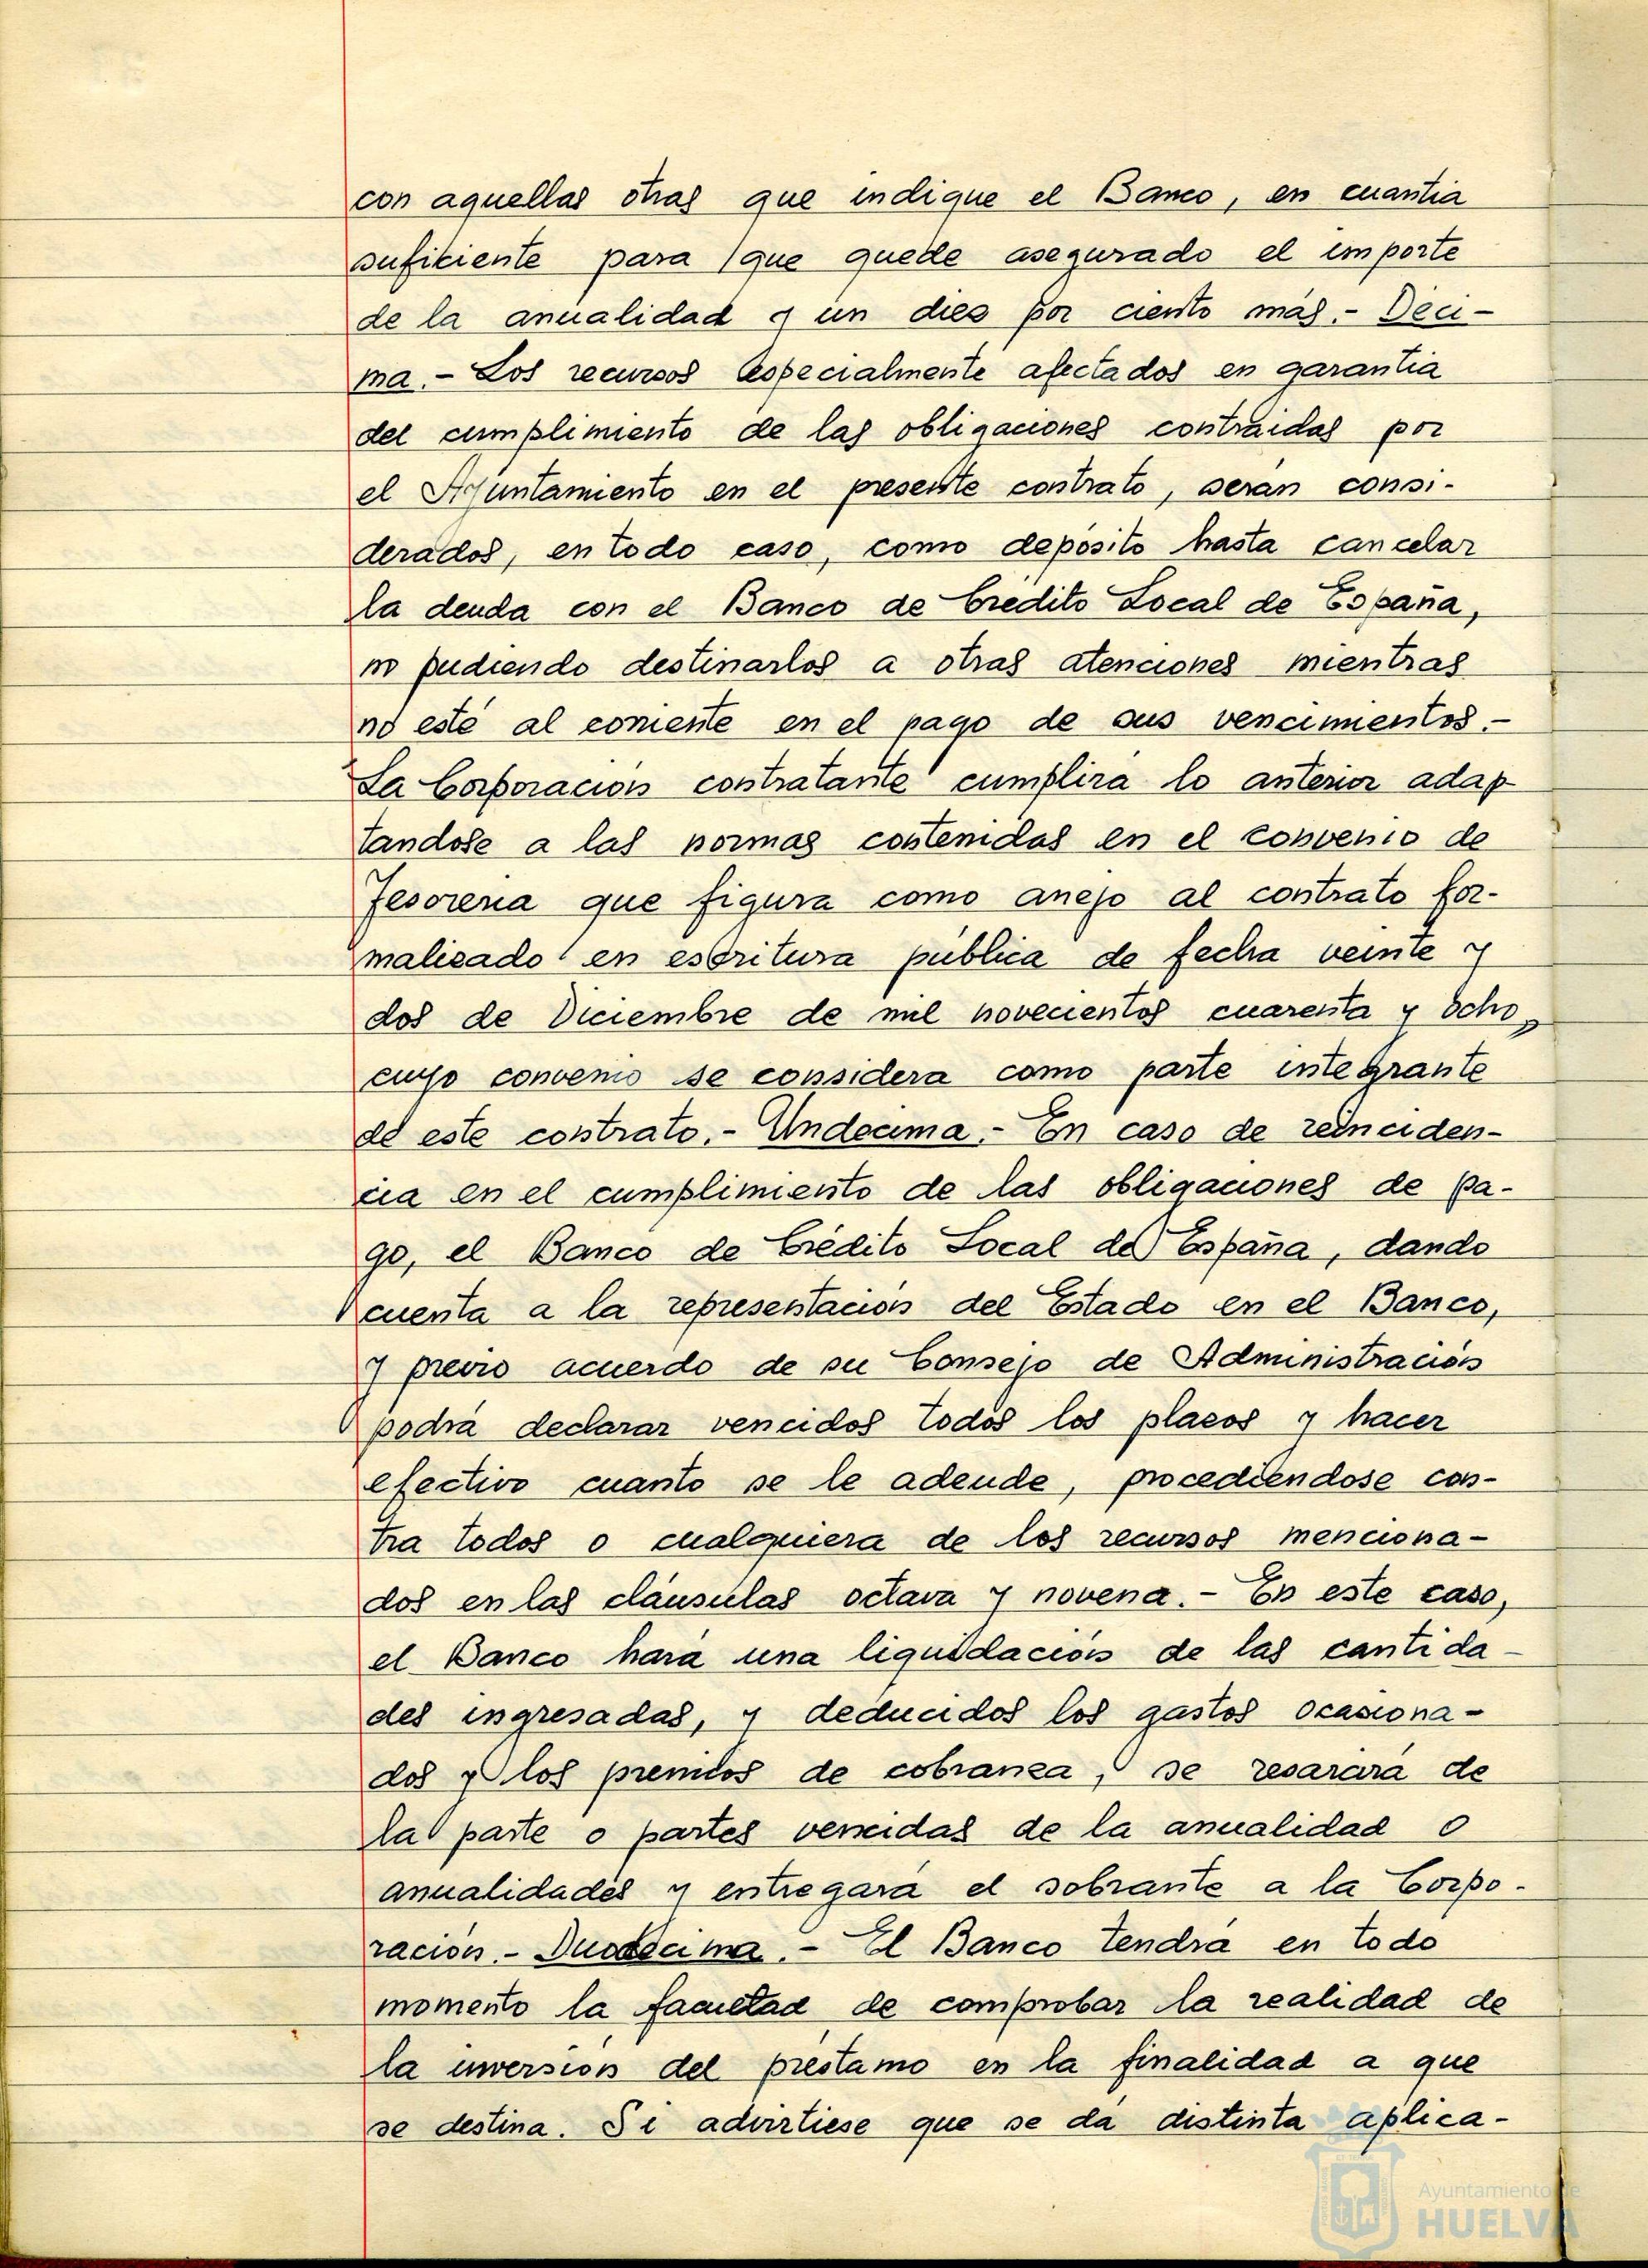 con aquellas otras que indique el Banco, en cuantia
suficiente para que quede asegurado el importe
de la anualidad y un diez por ciento más.- Déci-
ma.- Los recursos especialmente afectados en garantia
del cumplimiento de las obligaciones contraidas por
el Ayuntamiento en el presente contrato, serán consi-
derados, en todo caso, como depósito hasta cancelar
la deuda con el Banco de Crédito Local de España,
no pudiendo destinarlos a otras atenciones mientras
no esté al corriente en el pago de sus vencimientos.-
La Corporación contratante cumplirá lo anterior adap
tandose a las normas contenidas en el convenio de
Tesoreria que figura como anejo al contrato for-
malizado en escritura pública de fecha veinte y
dos de Diciembre de mil novecientos cuarenta y ocho,
cuyo convenio se considera como parte integrante
de este contrato.- Undecima.- En caso de reinciden-
cia en el cumplimiento de las obligaciones de pa-
go, el Banco de Crédito Local de España, dando
cuenta a la representación del Estado en el Banco,
y previo acuerdo de su Consejo de Administración
podrá declarar vencidos todos los plazos y hacer
efectivo cuanto se le adeude, procediéndose con-
tra todos o cualquiera de los recursos menciona-
dos en las cláusulas octava y novena.- En este caso,
el Banco hará una liquidación de las cantida-
des ingresadas, y deducidos los gastos ocasiona-
dos y los premios de cobranza, se resarcirá de
la parte o partes vencidas de la anualidad o
anualidades y entregará el sobrante a la Corpo-
ración.- Duodécima.- El Banco tendrá en todo
momento la facultad de comprobar la realidad de
la inversión del préstamo en la finalidad a que
se destina. Si advirtiese que se da distinta aplica-
Ayuntamiento de
HUELVA